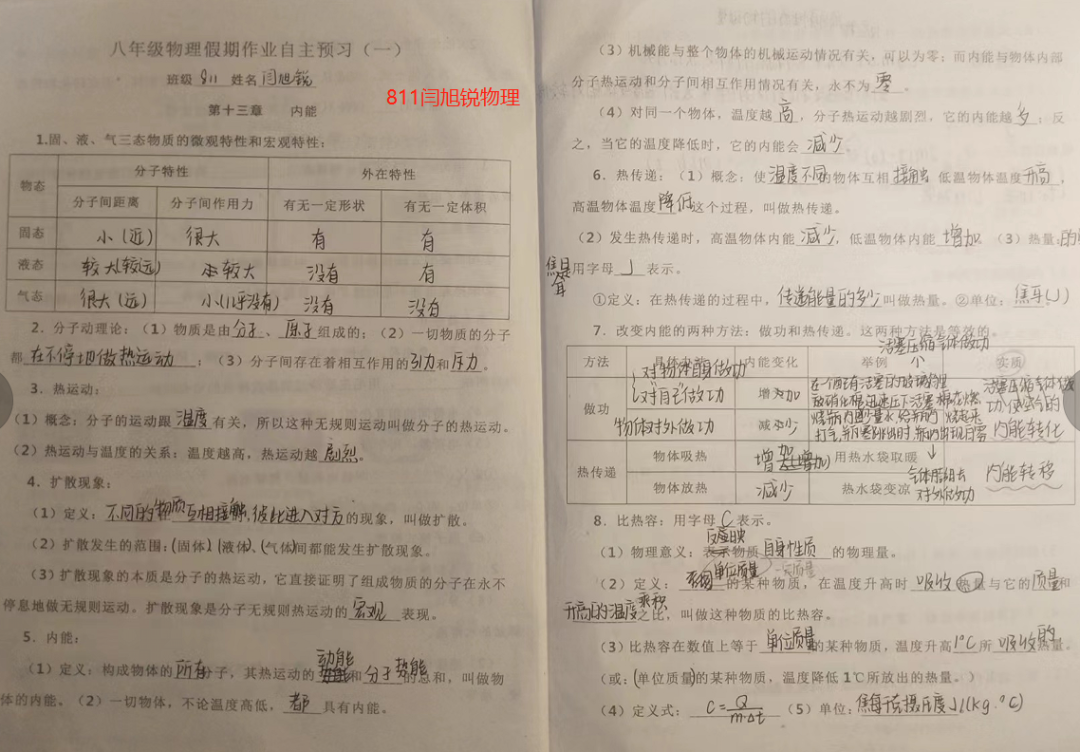 八年级物理假期作业自主预习（一）
班级 811 姓名 闫旭锐
811闫旭锐物理
第十三章 内能
1.固、液、气三态物质的微观特性和宏观特性：
物态 分子特性 外在特性
分子间距离 分子间作用力 有无一定形状 有无一定体积
固态 小(近) 很大 有 有
液态 较大(较远) 较大 没有 有
气态 很大(远) 小(几乎没有) 没有 没有
2．分子动理论：（1）物质是由分子、原子组成的；（2）一切物质的分子
都在不停地做热运动；（3）分子间存在着相互作用的引力和斥力。
3．热运动：
（1）概念：分子的运动跟温度有关，所以这种无规则运动叫做分子的热运动。
（2）热运动与温度的关系：温度越高，热运动越剧烈。
4．扩散现象：
（1）定义：不同的物质互相接触,彼此进入对方的现象，叫做扩散。
（2）扩散发生的范围：(固体)(液体)、(气体)间都能发生扩散现象。
（3）扩散现象的本质是分子的热运动，它直接证明了组成物质的分子在永不
停息地做无规则运动。扩散现象是分子无规则热运动的宏观表现。
5．内能：
（1）定义：构成物体的所有分子，其热运动的动能和分子势能的总和，叫做物
体的内能。（2）一切物体，不论温度高低，都具有内能。
（3）机械能与整个物体的机械运动情况有关，可以为零；而内能与物体内部
分子热运动和分子间相互作用情况有关，永不为零。
（4）对同一个物体，温度越高，分子热运动越剧烈，它的内能越多；反
之，当它的温度降低时，它的内能会减少。
6．热传递：（1）概念：使温度不同的物体互相接触 低温物体温度升高，
高温物体温度降低这个过程，叫做热传递。
（2）发生热传递时，高温物体内能减少，低温物体内能增加（3）热量：
用字母 J 表示。
①定义：在热传递的过程中，传递能量的多少叫做热量。②单位：焦耳(J)
7．改变内能的两种方法：做功和热传递。这两种方法是等效的。
活塞压缩气体做功
方法 具体方式 内能变化 举例 实质
做功 对物体做功 增加
物体对外做功 减少
内能转化
热传递 物体吸热 增加 用热水袋取暖 内能转移
物体放热 减少 热水袋变凉
8．比热容：用字母C表示。
（1）物理意义：反映物质自身性质的物理量。
（2）定义：单位质量的某种物质，在温度升高时吸收热量与它的质量和
升高的温度乘积之比，叫做这种物质的比热容。
（3）比热容在数值上等于单位质量的某种物质，温度升高1℃所吸收的热量。
（或：(单位质量)的某种物质，温度降低1℃所放出的热量。）
（4）定义式：C=Q/m·Δt （5）单位：焦每千克摄氏度 J/(kg·℃)